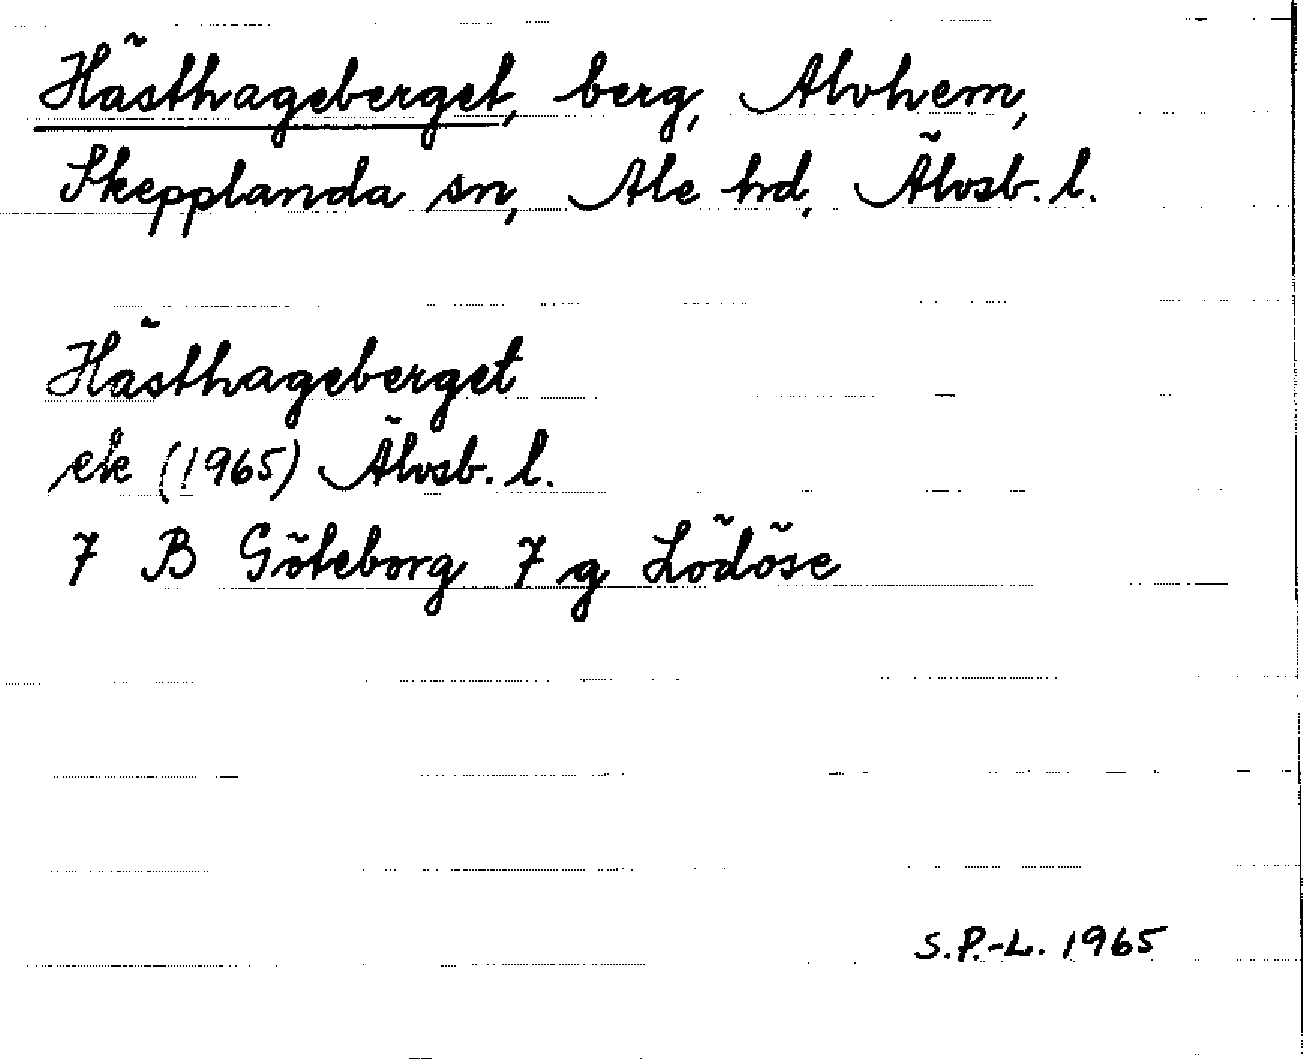 Hästhageberget, berg, Alvhem,
Skepplanda sn, Ale hd, Älvsb. l.
Hästhageberget
ek (1965) Älvsb. l.
7 B Göteborg 7 g Lödöse
S.P.-L. 1965